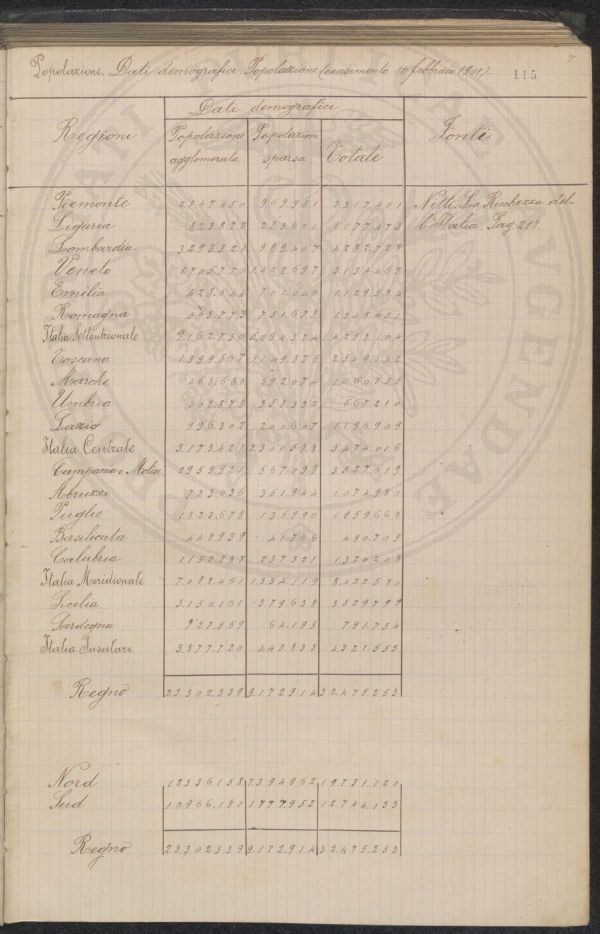 7
Popolazione. Dati demografici. Popolazione (censimento 10 febbraio 1901) 115
Dati demografici
Regioni Popolazione agglomerata Popolazione sparsa Totale Fonti
Piemonte 2347.450 969.951 3.317.401 Nitti. La Ricchezza del-
Liguria 823.872 253.601 1.077.473 l'Italia. Pag. 211.
Lombardia 3293.321 989.407 4282.728
Veneto 1.705.770 1.428.697 3.134.467
Emilia 428.544 701.040 1.129.584
Romagna 563.773 751.678 1.315.451
Italia Settentrionale 9.162.730 5.094.374 14.257.104
Toscana 1.399.567 1.149.575 2.549.142
Marche 468.681 592.074 1.060.755
Umbria 308.878 358.332 667.210
Lazio 996.302 200.607 1.196.909
Italia Centrale 3.173.428 2.300.588 5.474.016
Campania e Molise 2959.921 567.098 3.527.019
Abruzzi 723.036 351.944 1.074.980
Puglie 1.823.678 135.990 1959.668
Basilicata 448.939 41.766 490.705
Calabria 1.132.887 237.321 1370.208
Italia Meridionale 7.088.461 1.334.119 8.422.580
Sicilia 3.150.161 379.638 3529.799
Sardegna 727.559 64.195 791.754
Italia Insulare 3.877.720 443.833 4321.553
Regno 23.302.339 9.172.914 32.475.253
Nord 12336.158 7394962 19.731.120
Sud 10966.181 1777.952 12744.133
Regno 23302339 9.172.914 32475.253